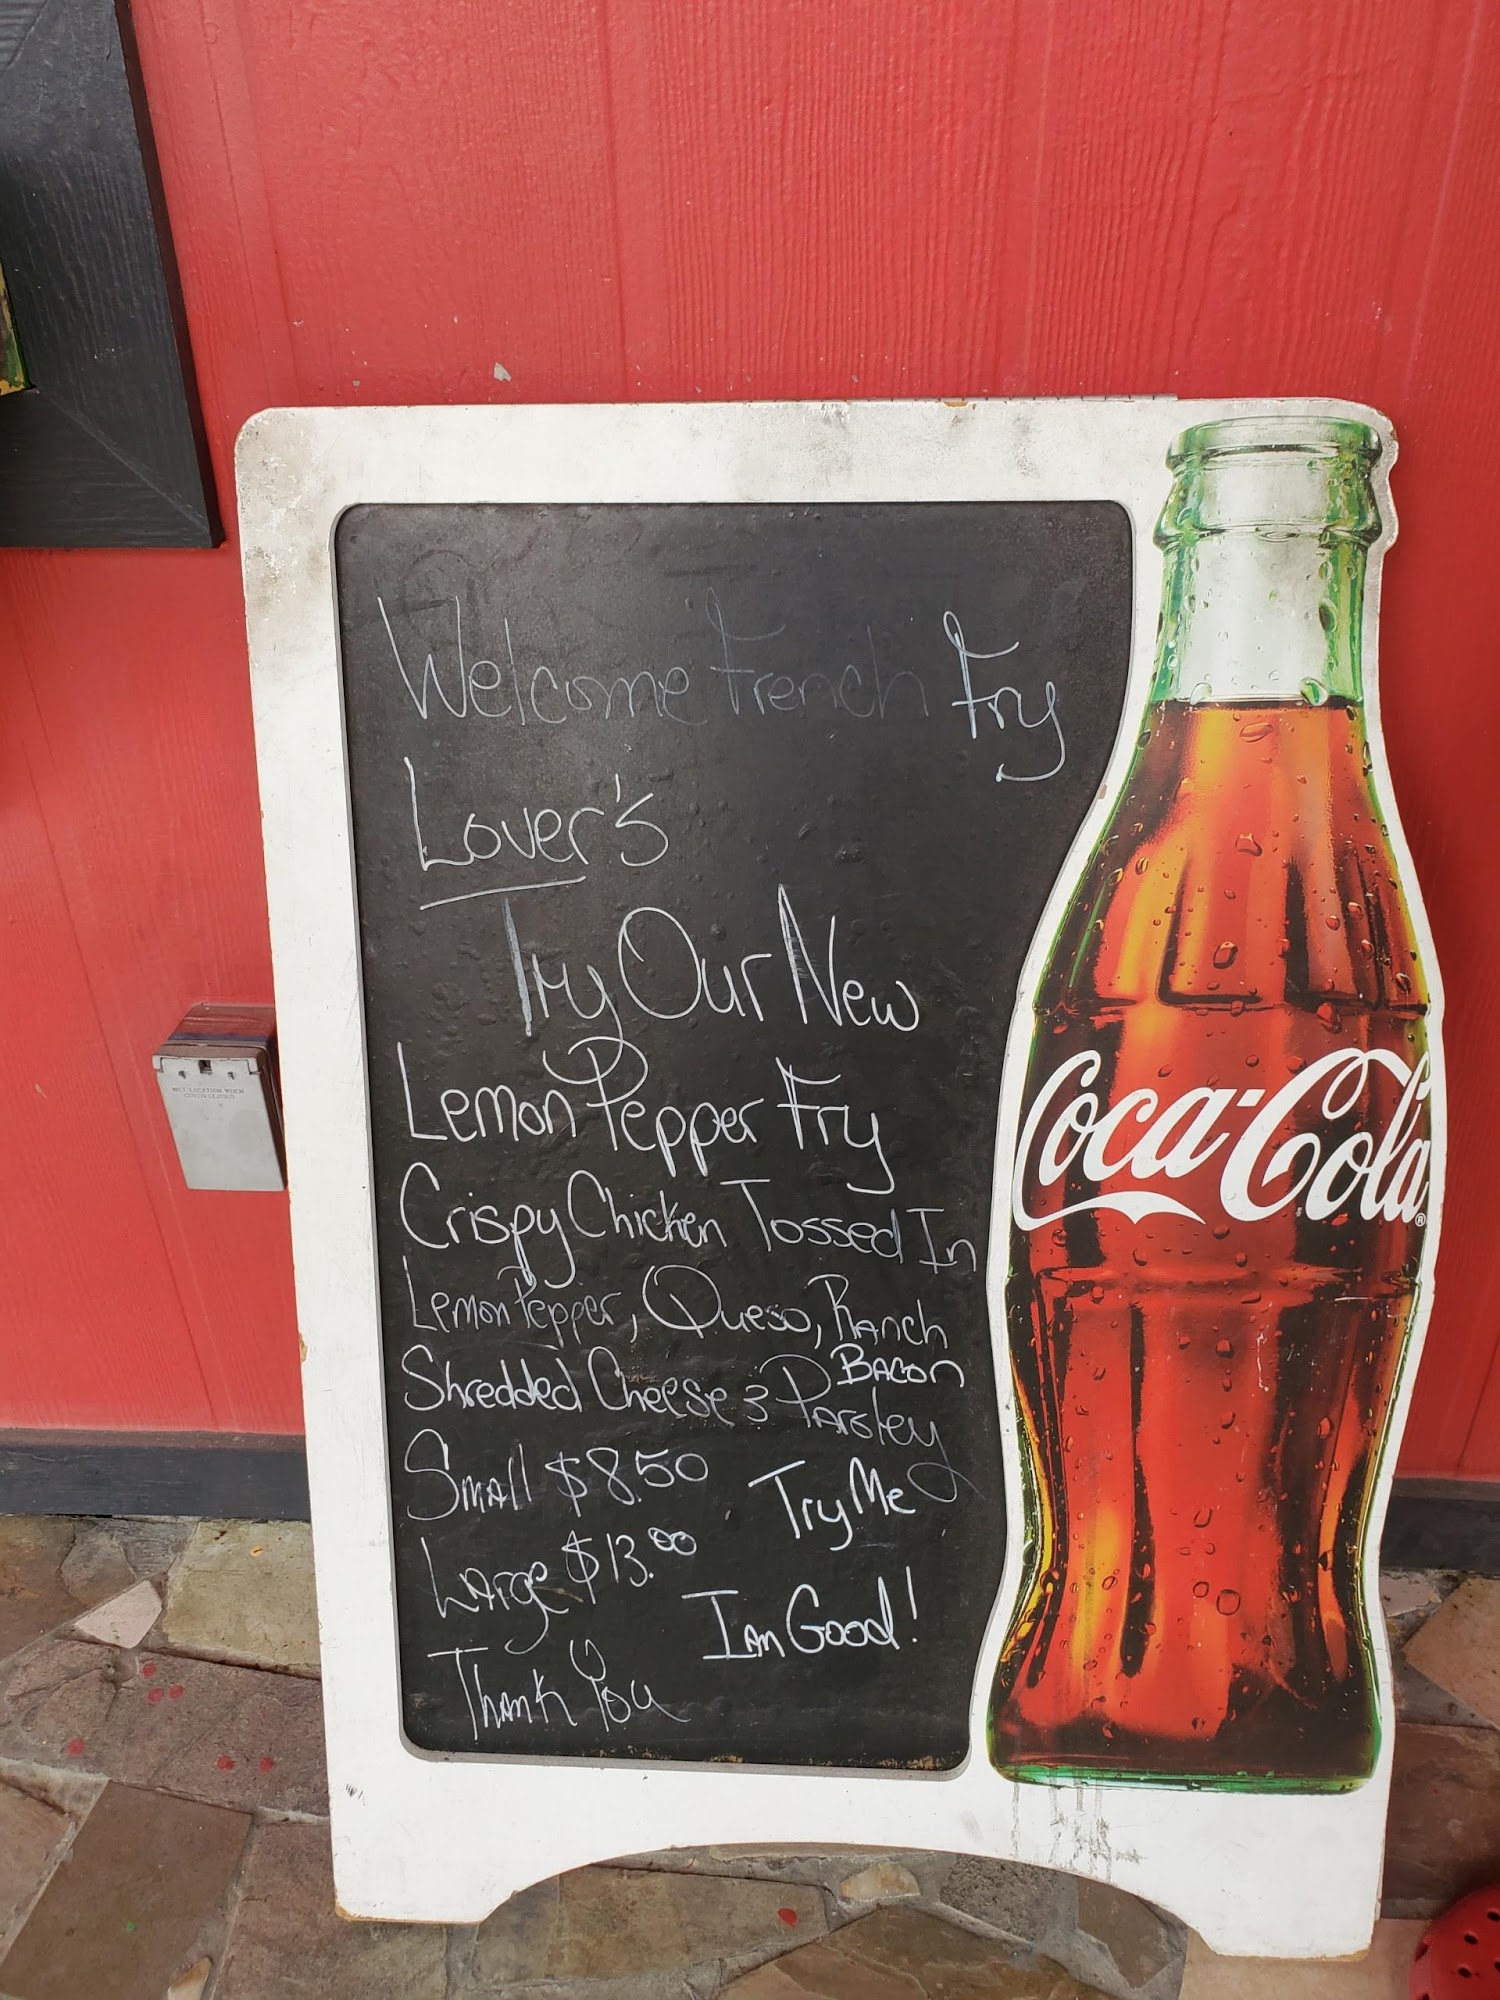 Welcome French Fry
Lover's
Try Our New
Lemon Pepper Fry
Crispy Chicken Tossed In
Lemon Pepper, Queso, Ranch
Bacon
Shredded Cheese & Parsley
Small $8.50
Large $13.00
Thank You
Try Me
I am Good!
Coca-Cola®
WET LOCATION WHEN
COVER CLOSED